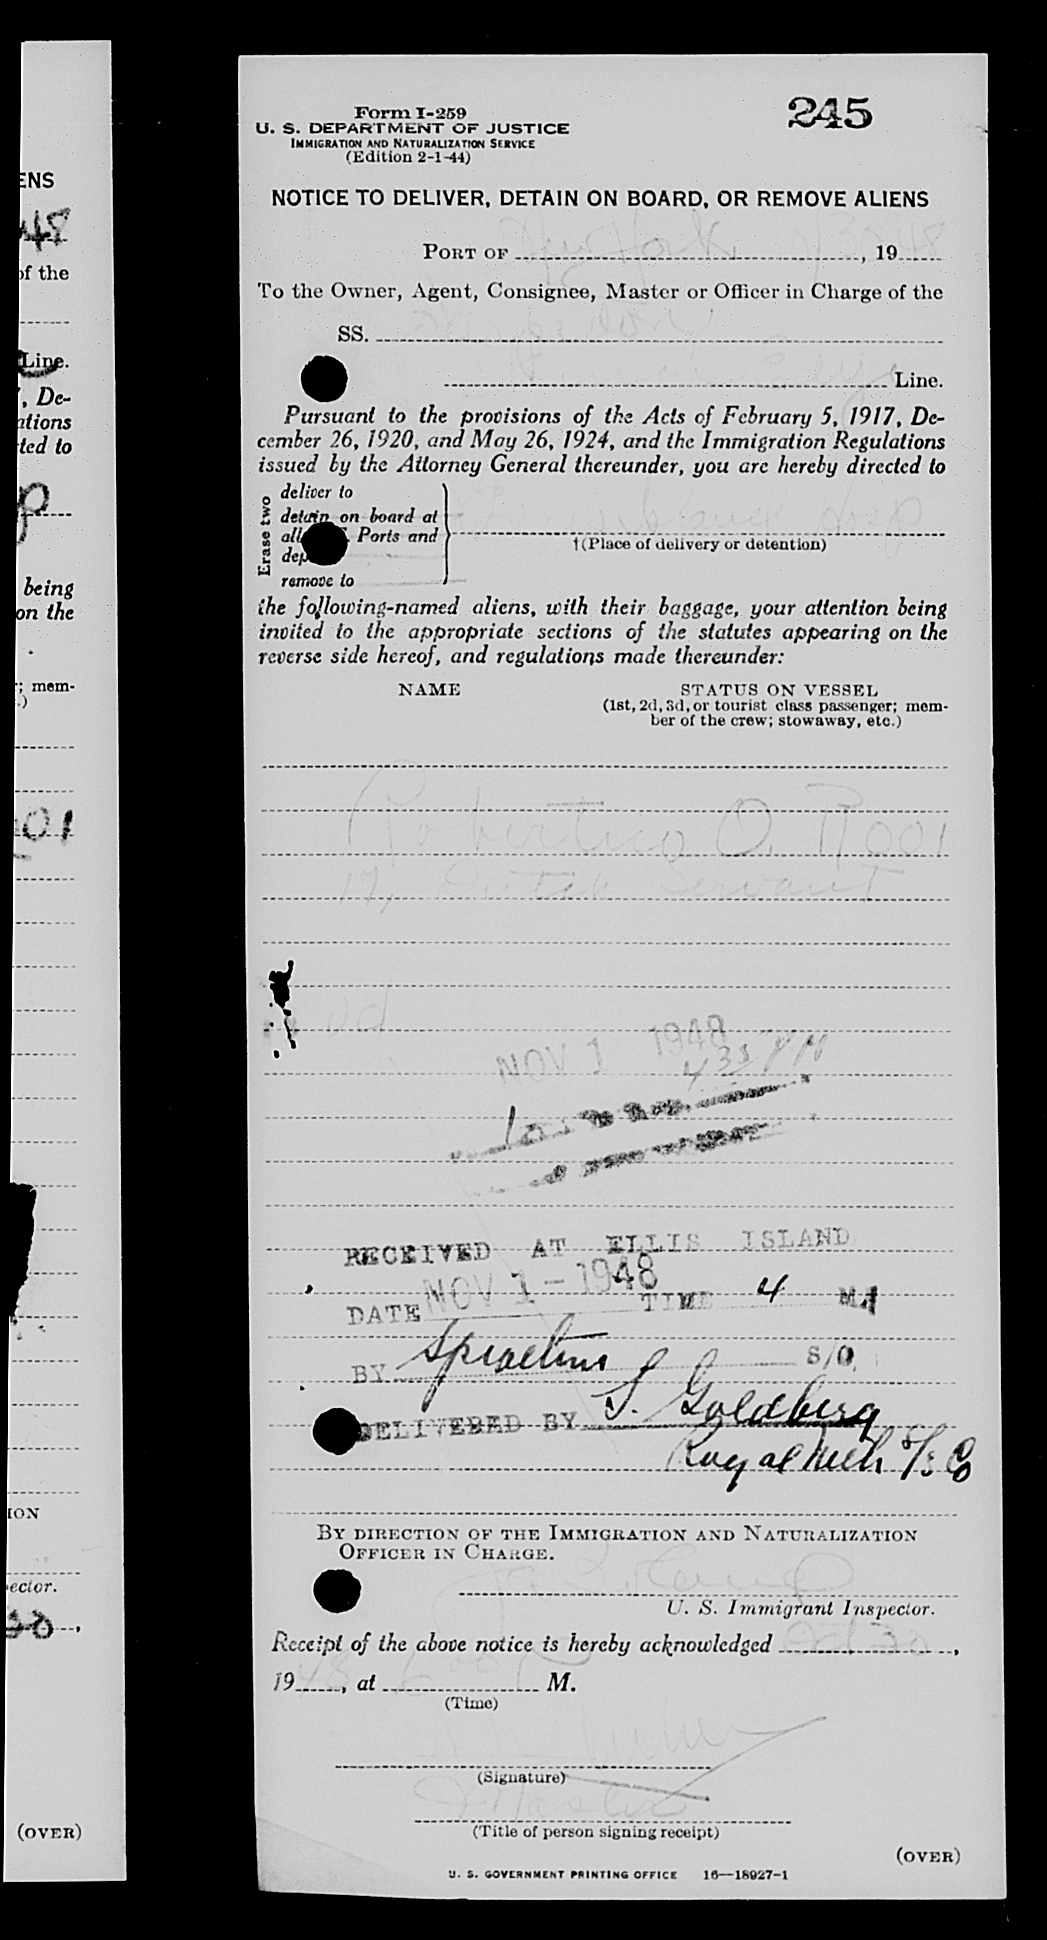 ENS
48
of the
Line.
, De-
ations
ted to
being
on the
; mem-
.)
01
ION
ector.
(OVER)
Form I-259
245
U. S. DEPARTMENT OF JUSTICE
IMMIGRATION AND NATURALIZATION SERVICE
(Edition 2-1-44)
NOTICE TO DELIVER, DETAIN ON BOARD, OR REMOVE ALIENS
PORT OF New York, 19 48
To the Owner, Agent, Consignee, Master or Officer in Charge of the
SS.
Line.
Pursuant to the provisions of the Acts of February 5, 1917, De-
cember 26, 1920, and May 26, 1924, and the Immigration Regulations
issued by the Attorney General thereunder, you are hereby directed to
Erase two
deliver to
detain on board at
all Ports and
remove to
†(Place of delivery or detention)
the following-named aliens, with their baggage, your attention being
invited to the appropriate sections of the statutes appearing on the
reverse side hereof, and regulations made thereunder:
NAME STATUS ON VESSEL
(1st, 2d, 3d, or tourist class passenger; mem-
ber of the crew; stowaway, etc.)
Robertico O. Rooi
17, Dutch Servant
NOV 1 1948
4 35 PM
RECEIVED AT ELLIS ISLAND
DATE NOV 1 - 1948 TIME 4 M
BY S/O
DELIVERED BY S. Goldberg
Royal Neth S/S Co
BY DIRECTION OF THE IMMIGRATION AND NATURALIZATION
OFFICER IN CHARGE.
U. S. Immigrant Inspector.
Receipt of the above notice is hereby acknowledged Oct 30,
19 48, at M.
(Time)
(Signature)
Master
(Title of person signing receipt)
(OVER)
U. S. GOVERNMENT PRINTING OFFICE 16—18927-1